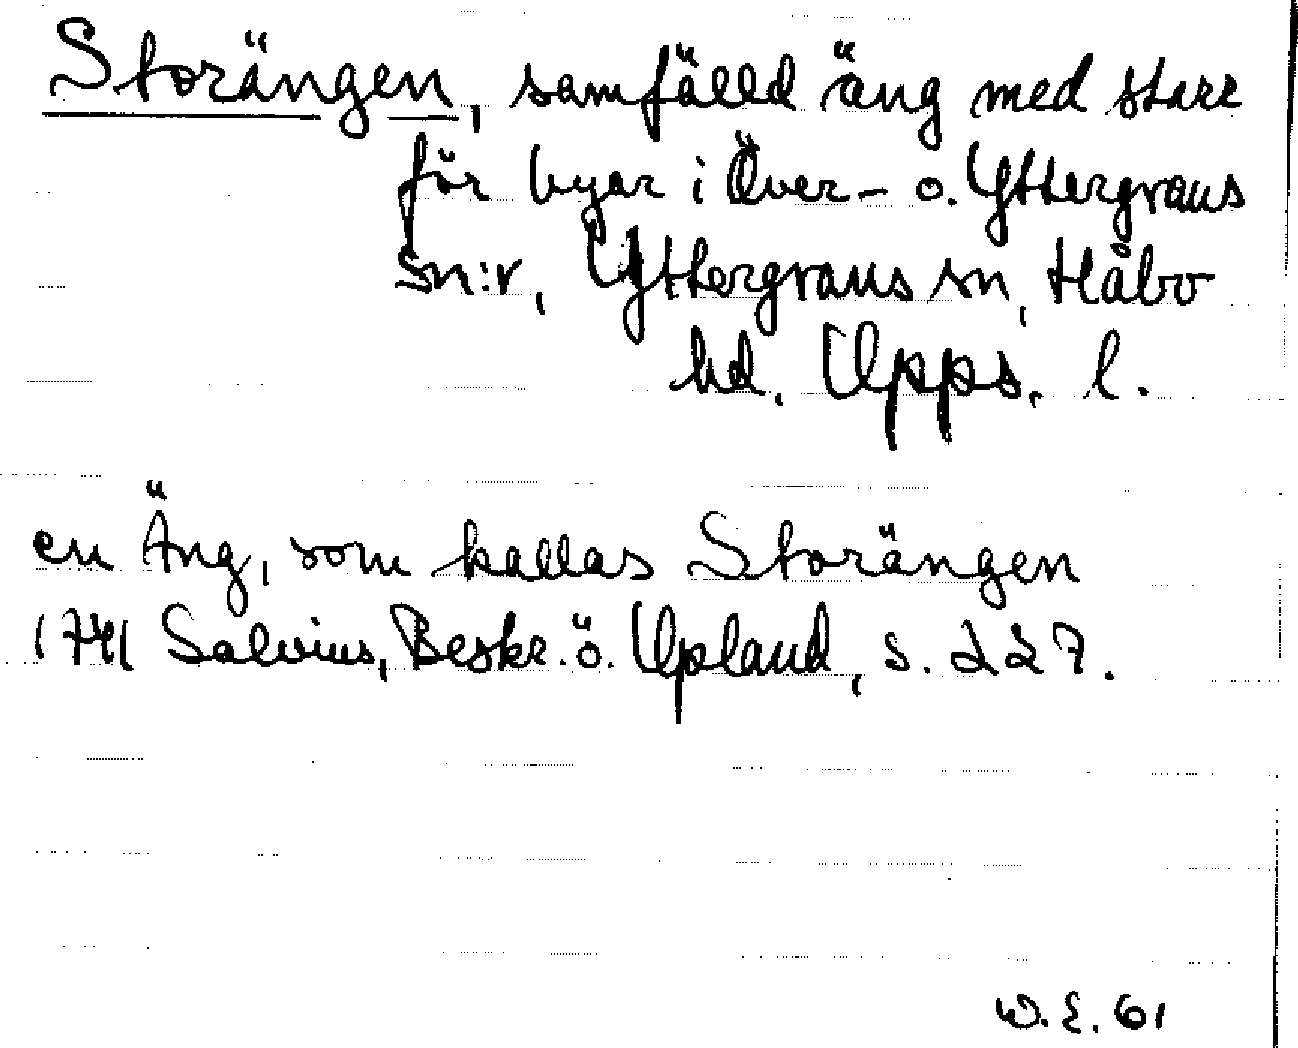 Storängen, samfälld äng med starr
för byar i Över- o. Yttergrans
sn:r, Yttergrans sn, Håbo
hd, Upps. l.
en Äng, som kallas Storängen
1741 Salvius, Beskr. ö. Upland, s. 227.
W.E. 61